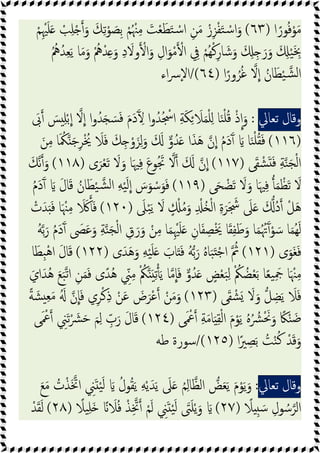 مَوْفُورًا (٦٣) وَاسْتَفْزِزْ مَنِ اسْتَطَعْتَ مِنْهُمْ بِصَوْتِكَ وَأَجْلِبْ عَلَيْهِمْ
بِخَيْلِكَ وَرَجِلِكَ وَشَارِكْهُمْ فِي الْأَمْوَالِ وَالْأَوْلَادِ وَعِدْهُمْ وَمَا يَعِدُهُمُ
الشَّيْطَانُ إِلَّا غُرُورًا (٦٤)/الإسراء
وقال تعالي : وَإِذْ قُلْنَا لِلْمَلَائِكَةِ اسْجُدُوا لِآدَمَ فَسَجَدُوا إِلَّا إِبْلِيسَ أَبَى
(١١٦) فَقُلْنَا يَا آدَمُ إِنَّ هَذَا عَدُوٌّ لَكَ وَلِزَوْجِكَ فَلَا يُخْرِجَنَّكُمَا مِنَ
الْجَنَّةِ فَتَشْقَى (١١٧) إِنَّ لَكَ أَلَّا تَجُوعَ فِيهَا وَلَا تَعْرَى (١١٨) وَأَنَّكَ
لَا تَظْمَأُ فِيهَا وَلَا تَضْحَى (١١٩) فَوَسْوَسَ إِلَيْهِ الشَّيْطَانُ قَالَ يَا آدَمُ
هَلْ أَدُلُّكَ عَلَى شَجَرَةِ الْخُلْدِ وَمُلْكٍ لَا يَبْلَى (١٢٠) فَأَكَلَا مِنْهَا فَبَدَتْ
لَهُمَا سَوْآتُهُمَا وَطَفِقَا يَخْصِفَانِ عَلَيْهِمَا مِنْ وَرَقِ الْجَنَّةِ وَعَصَى آدَمُ رَبَّهُ
فَغَوَى (١٢١) ثُمَّ اجْتَبَاهُ رَبُّهُ فَتَابَ عَلَيْهِ وَهَدَى (١٢٢) قَالَ اهْبِطَا
مِنْهَا جَمِيعًا بَعْضُكُمْ لِبَعْضٍ عَدُوٌّ فَإِمَّا يَأْتِيَنَّكُمْ مِنِّي هُدًى فَمَنِ اتَّبَعَ هُدَايَ
فَلَا يَضِلُّ وَلَا يَشْقَى (١٢٣) وَمَنْ أَعْرَضَ عَنْ ذِكْرِي فَإِنَّ لَهُ مَعِيشَةً
ضَنْكًا وَنَحْشُرُهُ يَوْمَ الْقِيَامَةِ أَعْمَى (١٢٤) قَالَ رَبِّ لِمَ حَشَرْتَنِي أَعْمَى
وَقَدْ كُنْتُ بَصِيرًا (١٢٥)/سورة طه
وقال تعالي: وَيَوْمَ يَعَضُّ الظَّالِمُ عَلَى يَدَيْهِ يَقُولُ يَا لَيْتَنِي اتَّخَذْتُ مَعَ
الرَّسُولِ سَبِيلًا (٢٧) يَا وَيْلَتَى لَيْتَنِي لَمْ أَتَّخِذْ فُلَانًا خَلِيلًا (٢٨) لَقَدْ